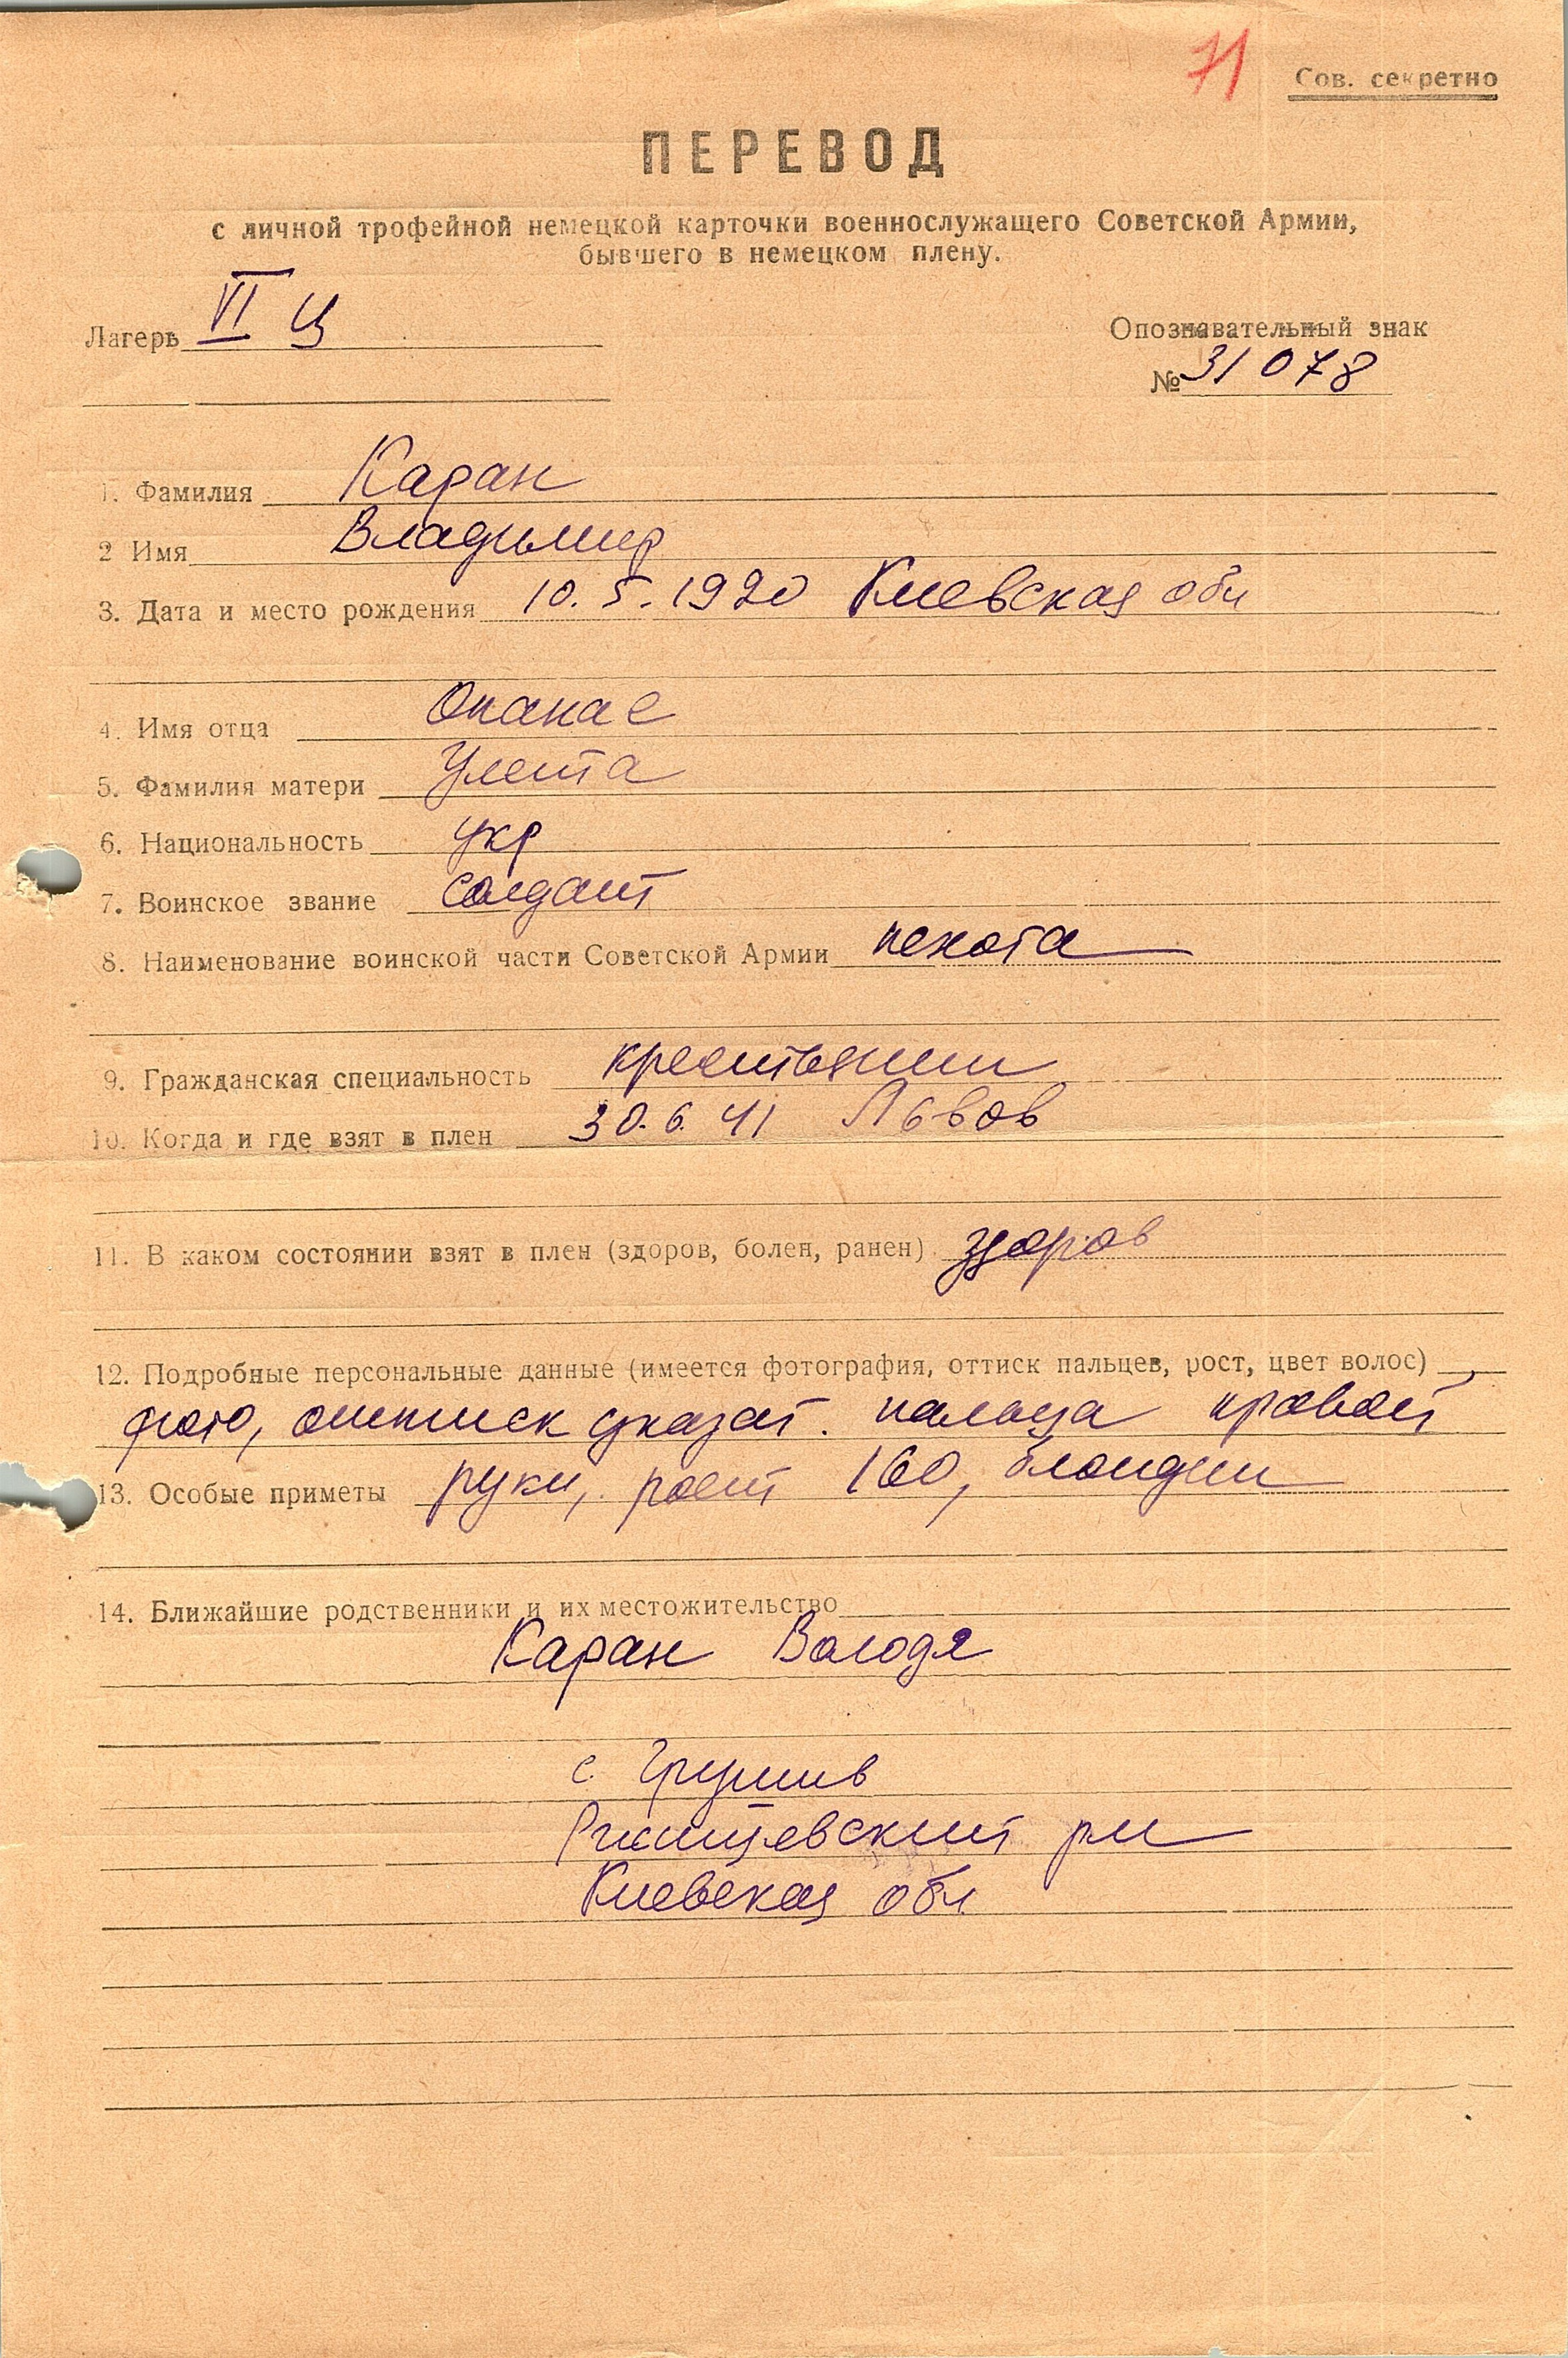 71
Сов. секретно
ПЕРЕВОД
с личной трофейной немецкой карточки военнослужащего Советской Армии,
бывшего в немецком плену.
Лагерь VI Ц
Опознавательный знак
№ 31078
1. Фамилия Каран
2 Имя Владимир
3. Дата и место рождения 10.5.1920 Киевская обл
4. Имя отца Опанас
5. Фамилия матери
6. Национальность укр
7. Воинское звание солдат
8. Наименование воинской части Советской Армии пехота
9. Гражданская специальность крестьянин
10. Когда и где взят в плен 30.6.41 Львов
11. В каком состоянии взят в плен (здоров, болен, ранен) здоров
12. Подробные персональные данные (имеется фотография, оттиск пальцев, рост, цвет волос)
фото, оттиск указат. пальца правой
13. Особые приметы руки, рост 160, блондин
14. Ближайшие родственники и их местожительство
Каран Володя
с. Грушив
Ржищевский рн
Киевская обл